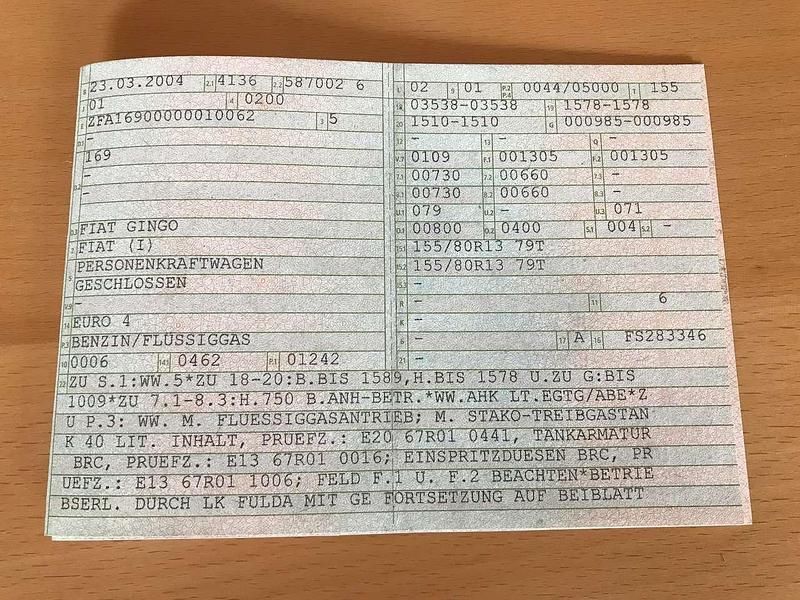 B 23.03.2004 2.1 4136 2.2 587002 6 L 02 9 01 P.2 P.4 0044/05000 T 155
J 01 4 0200 18 03538-03538 19 1578-1578
E ZFA16900000010062 3 5 20 1510-1510 G 000985-000985
D.1 - 12 - 13 - Q -
169 V.7 0109 F.1 001305 F.2 001305
- 7.1 00730 7.2 00660 7.3 -
D.2 - 8.1 00730 8.2 00660 8.3 -
U.1 079 U.2 - U.3 071
D.3 FIAT GINGO O.1 00800 O.2 0400 S.1 004 S.2 -
2 FIAT (I) 15.1 155/80R13 79T
5 PERSONENKRAFTWAGEN 15.2 155/80R13 79T
GESCHLOSSEN 15.3 -
V.9 - R - 11 6
14 EURO 4 K -
P.3 BENZIN/FLÜSSIGGAS 6 - 17 A 16 FS283346
10 0006 14.1 0462 P.1 01242 21 -
22 ZU S.1:WW.5*ZU 18-20:B.BIS 1589,H.BIS 1578 U.ZU G:BIS
1009*ZU 7.1-8.3:H.750 B.ANH-BETR.*WW.AHK LT.EGTG/ABE*Z
U P.3: WW. M. FLUESSIGGASANTRIEB; M. STAKO-TREIBGASTAN
K 40 LIT. INHALT, PRUEFZ.: E20 67R01 0441, TANKARMATUR
BRC, PRUEFZ.: E13 67R01 0016; EINSPRITZDUESEN BRC, PR
UEFZ.: E13 67R01 1006; FELD F.1 U. F.2 BEACHTEN*BETRIE
BSERL. DURCH LK FULDA MIT GE FORTSETZUNG AUF BEIBLATT